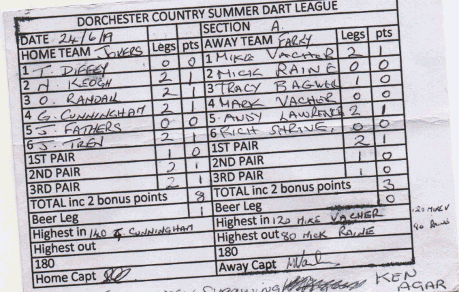 DORCHESTER COUNTRY SUMMER DART LEAGUE
DATE 24/6/19 SECTION A.
HOME TEAM Legs pts AWAY TEAM FARRY Legs pts
1 T. DIFFEY 0 0 1 MIKE VACHER 2 1
2 N. KEOGH 2 1 2 MICK RAINE 0 0
3 O. RANDALL 2 1 3 TRACY 1 0
4 G. CUNNINGHAM 2 1 4 MARK VACHER 0 0
5 J. FATHERS 0 0 5 ANDY LAWRENCE 2 1
6 J. TREN 2 1 6 RICH SHRINE. 0 0
1ST PAIR 1 0 1ST PAIR 2 1
2ND PAIR 2 1 2ND PAIR 1 0
3RD PAIR 2 1 3RD PAIR 1 0
TOTAL inc 2 bonus points 8 TOTAL inc 2 bonus points 3
Beer Leg 1 Beer Leg 0
Highest in 140 G CUNNINGHAM Highest in 120 MIKE VACHER 120 MIKE V
Highest out Highest out 80 MICK RAINE 80
180 180
Home Capt Away Capt
KEN
AGAR